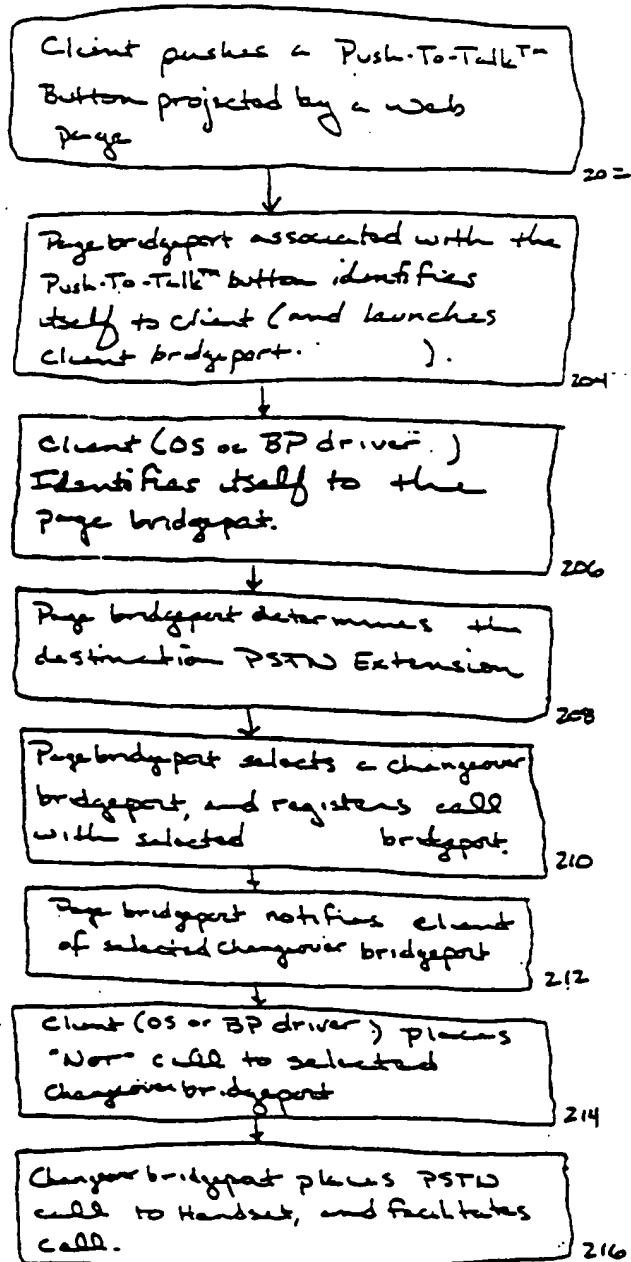 Client pushes a Push-To-Talk™
Button projected by a web
page
202
Page bridgeport associated with the
Push-To-Talk™ button identifies
itself to client (and launches
client bridgeport. ).
204
Client (OS or BP driver. )
Identifies itself to the
Page bridgeport.
206
Page bridgeport determines the
destination PSTN Extension
208
Page bridgeport selects a changeover
bridgeport, and registers call
with selected bridgeport.
210
Page bridgeport notifies client
of selected changeover bridgeport
212
Client (OS or BP driver ) places
call to selected
Changeover bridgeport
214
Changeover bridgeport places PSTN
call to Handset, and facilitates
call.
216